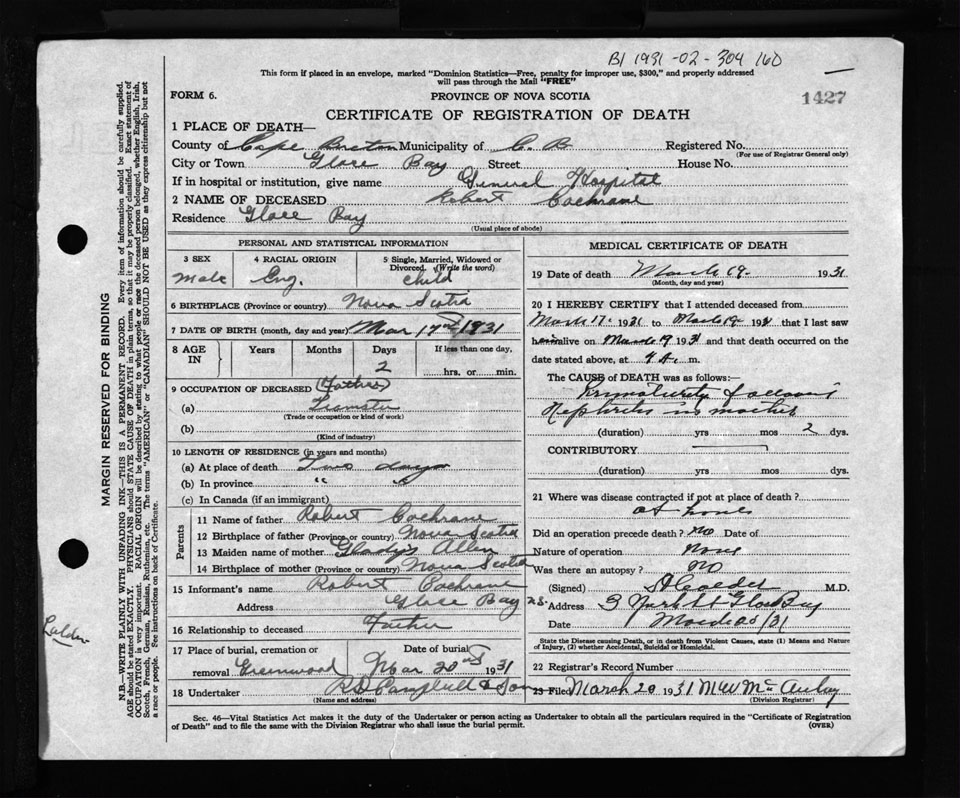 B1 1931-02-304160
This form if placed in an envelope, marked "Dominion Statistics—Free, penalty for improper use, $300," and properly addressed
will pass through the Mail "FREE"
FORM 6.
PROVINCE OF NOVA SCOTIA
1427
CERTIFICATE OF REGISTRATION OF DEATH
1 PLACE OF DEATH—
County of Cape Breton Municipality of C. B Registered No.
(For use of Registrar General only)
City or Town Glace Bay Street House No.
If in hospital or institution, give name General Hospital
2 NAME OF DECEASED Robert Cochrane
Residence Glace Bay
(Usual place of abode)
PERSONAL AND STATISTICAL INFORMATION
3 SEX
male
4 RACIAL ORIGIN
Eng.
5 Single, Married, Widowed or
Divorced (Write the word)
child
6 BIRTHPLACE (Province or country) Nova Scotia
7 DATE OF BIRTH (month, day and year) Mar 17 1931
8 AGE IN
Years
Months
Days
2
If less than one day,
hrs. or min.
9 OCCUPATION OF DECEASED (Father)
(a) Teamster
(Trade or occupation or kind of work)
(b)
(Kind of industry)
10 LENGTH OF RESIDENCE (in years and months)
(a) At place of death Two days
(b) In province " "
(c) In Canada (if an immigrant)
Parents
11 Name of father Robert Cochrane
12 Birthplace of father (Province or country) Nova Scotia
13 Maiden name of mother Gladys Allen
14 Birthplace of mother (Province or country) Nova Scotia
15 Informant's name Robert Cochrane
Address Glace Bay N.S.
16 Relationship to deceased Father
17 Place of burial, cremation or
removal Greenwood
Date of burial
Mar 20 1931
18 Undertaker R D Campbell & Son
(Name and address)
MEDICAL CERTIFICATE OF DEATH
19 Date of death March 19. 1931
(Month, day and year)
20 I HEREBY CERTIFY that I attended deceased from
March 17. 1931 to March 19 1931 that I last saw
h alive on March 19 1931 and that death occurred on the
date stated above, at 4 A. m.
The CAUSE of DEATH was as follows:—
Prematurity
Nephritis in mother
(duration) yrs mos 2 dys.
CONTRIBUTORY
(duration) yrs mos dys.
21 Where was disease contracted if not at place of death?
at home
Did an operation precede death? No Date of
Nature of operation None
Was there an autopsy? No
(Signed) M.D.
Address 3 York St Glace Bay
Date March 20/31
State the Disease causing Death, or in death from Violent Causes, state (1) Means and Nature
of Injury, (2) whether Accidental, Suicidal or Homicidal.
22 Registrar's Record Number
23 Filed March 20 1931 M W McAulay
(Division Registrar)
Sec. 46—Vital Statistics Act makes it the duty of the Undertaker or person acting as Undertaker to obtain all the particulars required in the "Certificate of Registration
of Death" and to file the same with the Division Registrar who shall issue the burial permit.
(OVER)
MARGIN RESERVED FOR BINDING
N.B.—WRITE PLAINLY WITH UNFADING INK—THIS IS A PERMANENT RECORD. Every item of information should be carefully supplied.
AGE should be stated EXACTLY. PHYSICIANS should STATE CAUSE OF DEATH in plain terms, so that it may be properly classified. Exact statement of
OCCUPATION is very important. RACIAL ORIGIN will be described by stating to what people or race the deceased person belonged, whether English, Irish,
Scotch, French, German, Russian, Ruthenian, etc. The terms "AMERICAN" or "CANADIAN" SHOULD NOT BE USED as they express citizenship but not
a race or people. See instructions on back of Certificate.
Calder